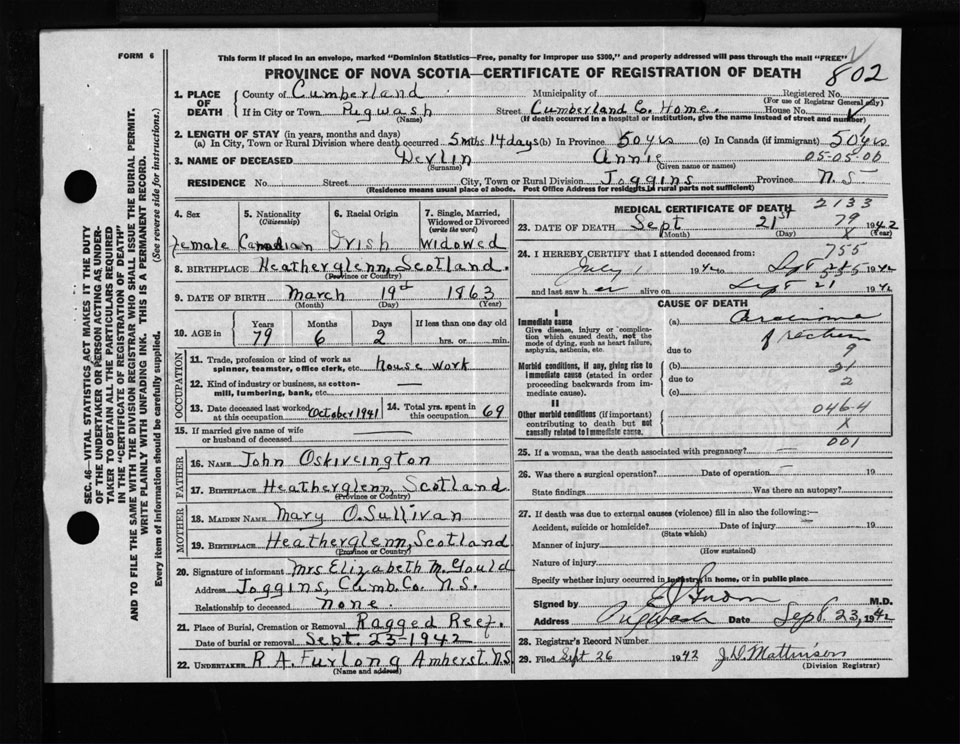 FORM 6
This form if placed in an envelope, marked "Dominion Statistics—Free, penalty for improper use $300," and properly addressed will pass through the mail "FREE"
PROVINCE OF NOVA SCOTIA—CERTIFICATE OF REGISTRATION OF DEATH
802
1. PLACE OF DEATH
County of Cumberland Municipality of Registered No.
(For use of Registrar General only)
If in City or Town Pugwash Street Cumberland Co. Home. House No.
(Name) (If death occurred in a hospital or institution, give the name instead of street and number)
2. LENGTH OF STAY (in years, months and days)
(a) In City, Town or Rural Division where death occurred 5 mths 14 days (b) In Province 50 yrs (c) In Canada (if immigrant) 50 yrs
3. NAME OF DECEASED Devlin Annie 05-05-00
(Surname) (Given name or names)
RESIDENCE No. Street City, Town or Rural Division Joggins Province N.S.
(Residence means usual place of abode. Post Office Address for residents in rural parts not sufficient)
4. Sex
Female
5. Nationality
(Citizenship)
Canadian
6. Racial Origin
Irish
7. Single, Married, Widowed or Divorced
(write the word)
Widowed
8. BIRTHPLACE Heatherglenn, Scotland.
(Province or Country)
9. DATE OF BIRTH March 19th 1863
(Month) (Day) (Year)
10. AGE in
Years Months Days If less than one day old
79 6 2 hrs. or min.
OCCUPATION
11. Trade, profession or kind of work as spinner, teamster, office clerk, etc. house work
12. Kind of industry or business, as cotton-mill, lumbering, bank, etc. —
13. Date deceased last worked at this occupation October 1941
14. Total yrs. spent in this occupation 69
15. If married give name of wife or husband of deceased —
FATHER
16. NAME John Oskivington
17. BIRTHPLACE Heatherglenn, Scotland
(Province or Country)
MOTHER
18. MAIDEN NAME Mary O.Sullivan
19. BIRTHPLACE Heatherglenn, Scotland
(Province or Country)
20. Signature of informant Mrs Elizabeth M. Gould
Address Joggins, Cumb. Co. N.S.
Relationship to deceased none.
21. Place of Burial, Cremation or Removal Ragged Reef.
Date of burial or removal Sept. 23-1942
22. UNDERTAKER R. A. Furlong Amherst. N.S.
(Name and address)
MEDICAL CERTIFICATE OF DEATH 2133
79
23. DATE OF DEATH Sept 21st 1942
(Month) (Day) X (Year)
24. I HEREBY CERTIFY that I attended deceased from: 755
July 1 1942 to Sept 1942
and last saw her alive on Sept 21 1942
CAUSE OF DEATH
I
Immediate cause
Give disease, injury or complication which caused death, not the mode of dying, such as heart failure, asphyxia, asthenia, etc.
(a) Carcinoma
of rectum
due to 9
Morbid conditions, if any, giving rise to immediate cause (stated in order proceeding backwards from immediate cause).
(b) 21
due to 2
(c)
II
Other morbid conditions (if important) contributing to death but not causally related to immediate cause.
046-4
X
001
25. If a woman, was the death associated with pregnancy? —
26. Was there a surgical operation? Date of operation — 19
State findings Was there an autopsy?
27. If death was due to external causes (violence) fill in also the following:—
Accident, suicide or homicide? Date of injury 19
(State which)
Manner of injury
(How sustained)
Nature of injury
Specify whether injury occurred in industry, in home, or in public place
Signed by M.D.
Address Pugwash Date Sept. 23, 1942
28. Registrar's Record Number
29. Filed Sept 26 1942 J.D. Mattinson
(Division Registrar)
SEC. 46—VITAL STATISTICS ACT MAKES IT THE DUTY
OF THE UNDERTAKER OR PERSON ACTING AS UNDER-
TAKER TO OBTAIN ALL THE PARTICULARS REQUIRED
IN THE "CERTIFICATE OF REGISTRATION OF DEATH"
AND TO FILE THE SAME WITH THE DIVISION REGISTRAR WHO SHALL ISSUE THE BURIAL PERMIT.
WRITE PLAINLY WITH UNFADING INK. THIS IS A PERMANENT RECORD.
Every item of information should be carefully supplied. (See reverse side for instructions.)